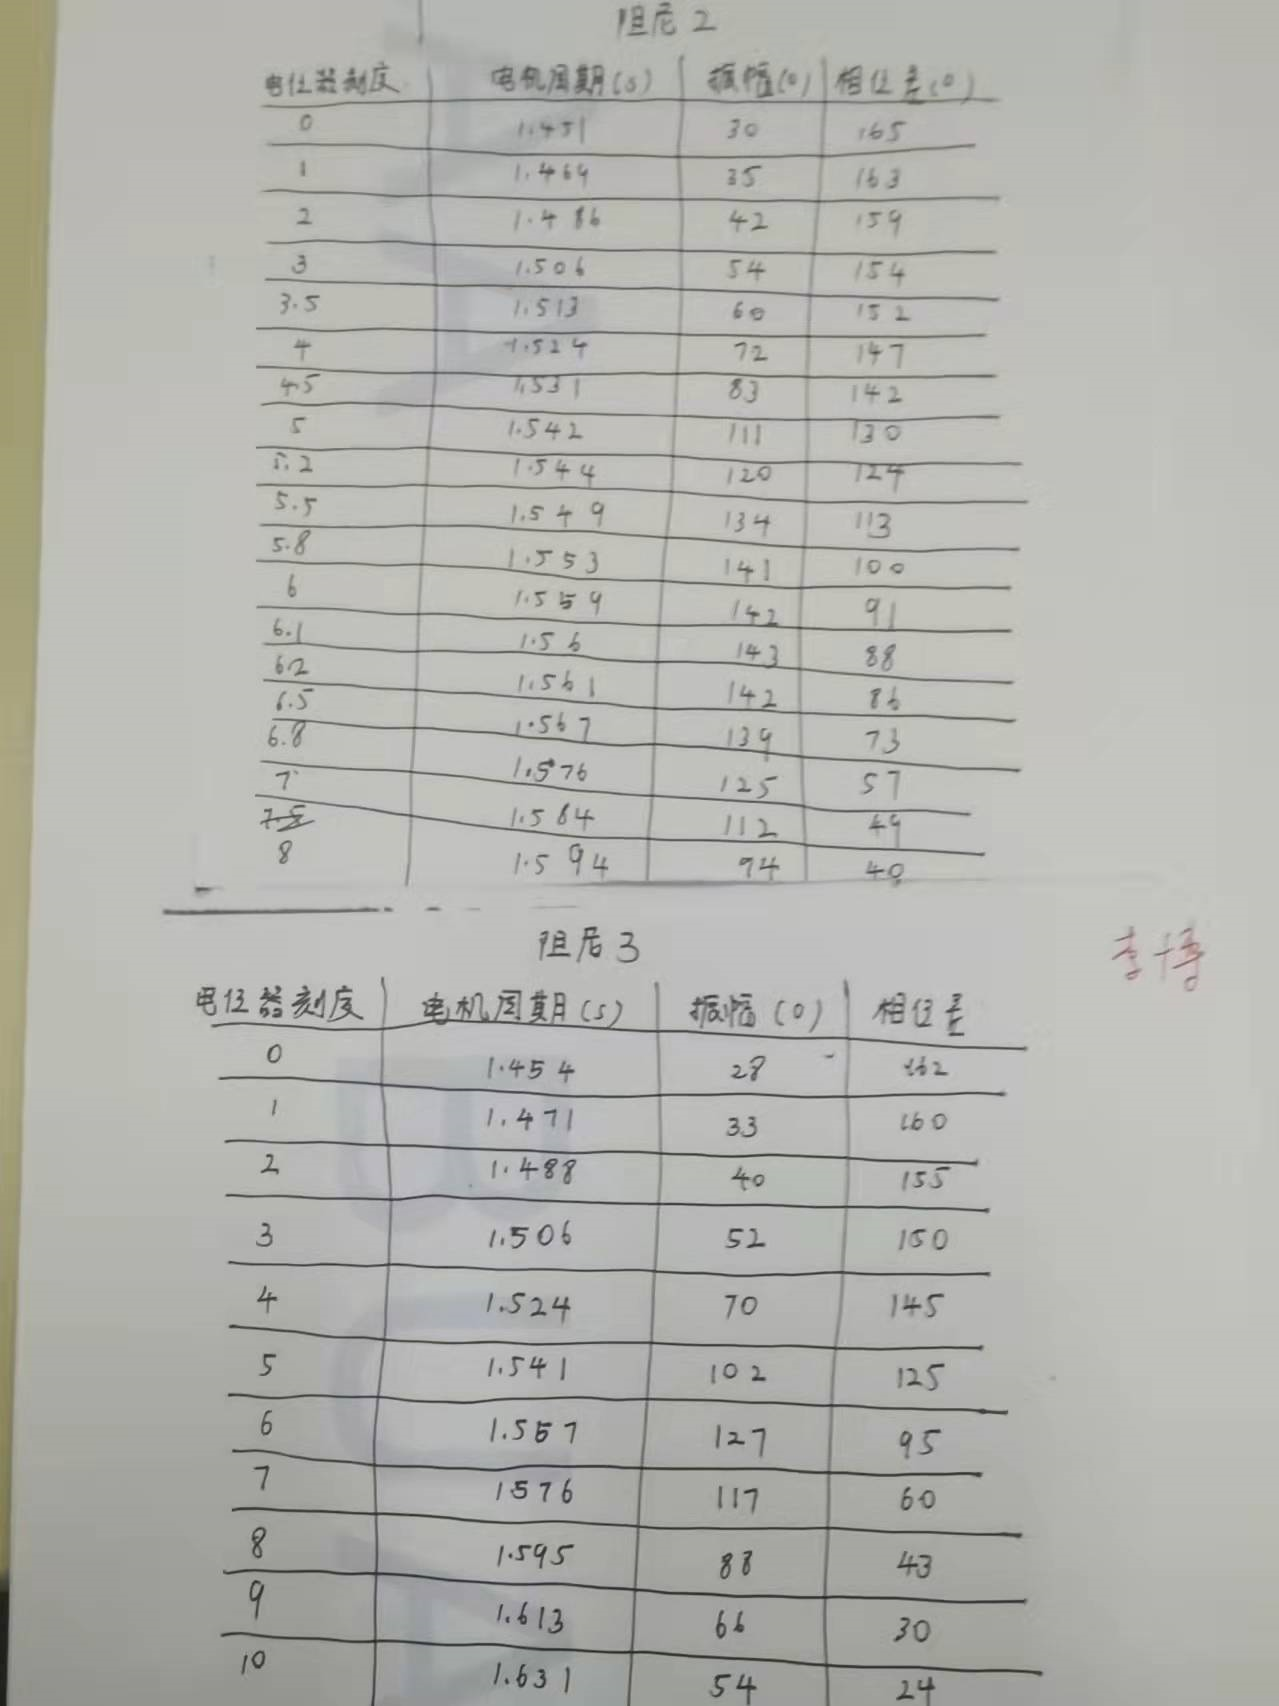 阻尼2
电位器刻度 电机周期(s) 振幅(0) 相位差(0)
0 1.451 30 165
1 1.469 35 163
2 1.486 42 159
3 1.506 54 154
3.5 1.513 60 152
4 1.524 72 147
4.5 1.531 83 142
5 1.542 111 130
5.2 1.544 120 124
5.5 1.549 134 113
5.8 1.553 141 100
6 1.559 142 91
6.1 1.56 143 88
6.2 1.561 142 86
6.5 1.567 139 73
6.8 1.576 125 57
7 1.584 112 49
7.5
8 1.594 94 40
阻尼3
电位器刻度 电机周期(s) 振幅(0) 相位差
0 1.454 28 162
1 1.471 33 160
2 1.488 40 155
3 1.506 52 150
4 1.524 70 145
5 1.541 102 125
6 1.557 127 95
7 1576 117 60
8 1.595 88 43
9 1.613 66 30
10 1.631 54 24